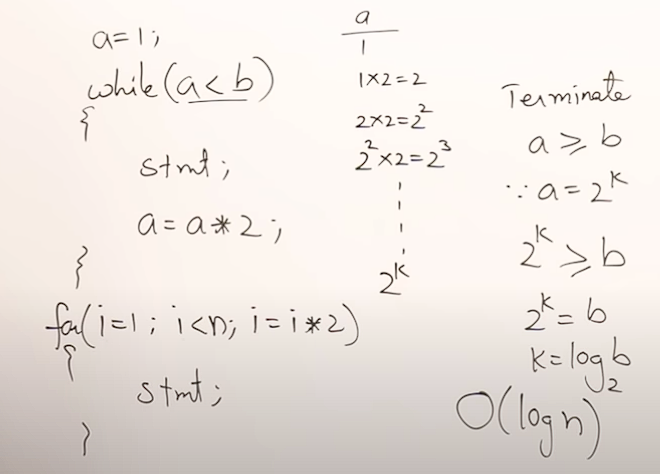 a=1;
while(a<b)
{
stmt;
a=a*2;
}
for(i=1; i<n; i=i*2)
{
stmt;
}
a
1
1×2=2
2×2=2²
2²×2=2³
2ᵏ
Terminate
a≥b
∵ a=2ᵏ
2ᵏ≥b
2ᵏ=b
k=log₂b
O(log n)